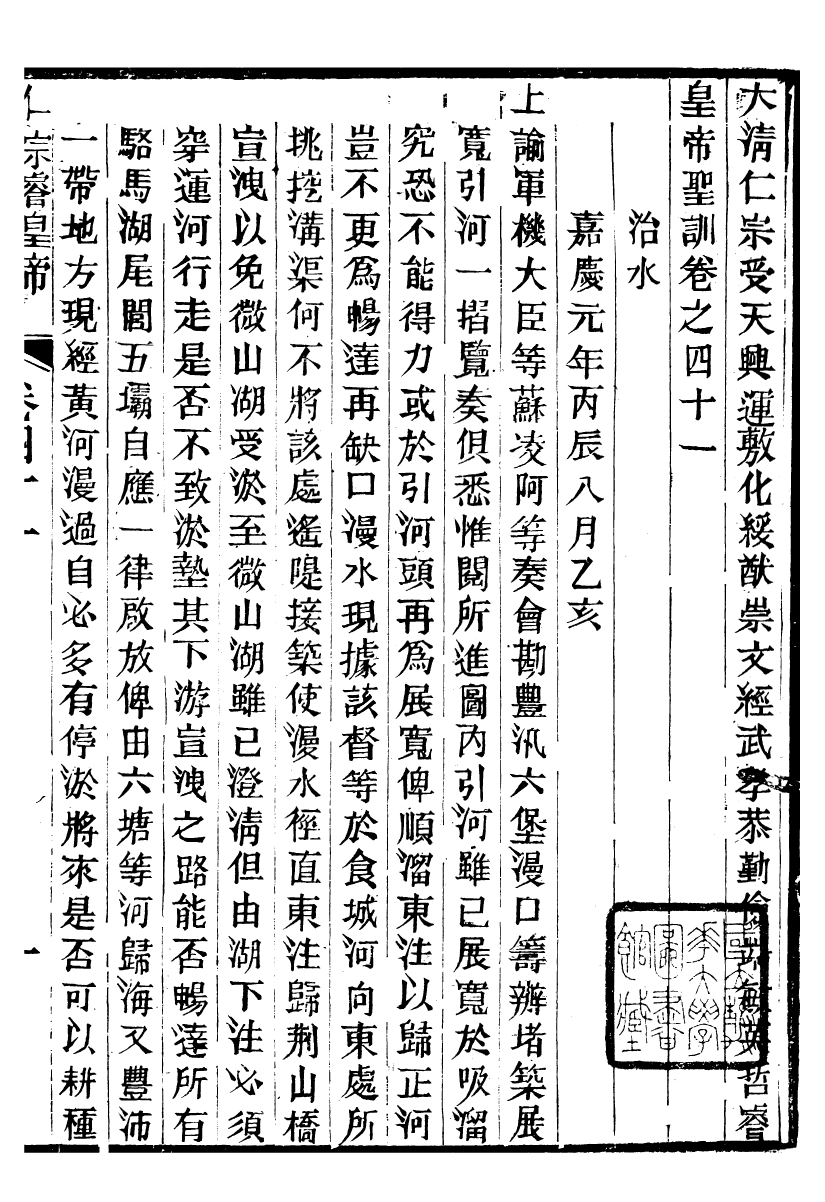 大清仁宗受天興運敷化綏猷崇文經武孝恭勤儉端敏英哲睿
皇帝聖訓卷之四十一
治水
嘉慶元年丙辰八月乙亥
上諭軍機大臣等蘇凌阿等奏會勘豐汛六堡漫口籌辦堵築展
寬引河一摺覽奏俱悉惟閱所進圖內引河雖已展寬於吸溜
究恐不能得力或於引河頭再爲展寬俾順溜東注以歸正河
豈不更爲暢達再缺口漫水現據該督等於食城河向東處所
挑挖溝渠何不將該處遙隄接築使漫水徑直東注歸荆山橋
宣洩以免微山湖受淤至微山湖雖已澄清但由湖下注必須
穿運河行走是否不致淤墊其下游宣洩之路能否暢達所有
駱馬湖尾閭五壩自應一律啟放俾由六塘等河歸海又豐沛
一帶地方現經黃河漫過自必多有停淤將來是否可以耕種
仁宗睿皇帝 卷四十一 一